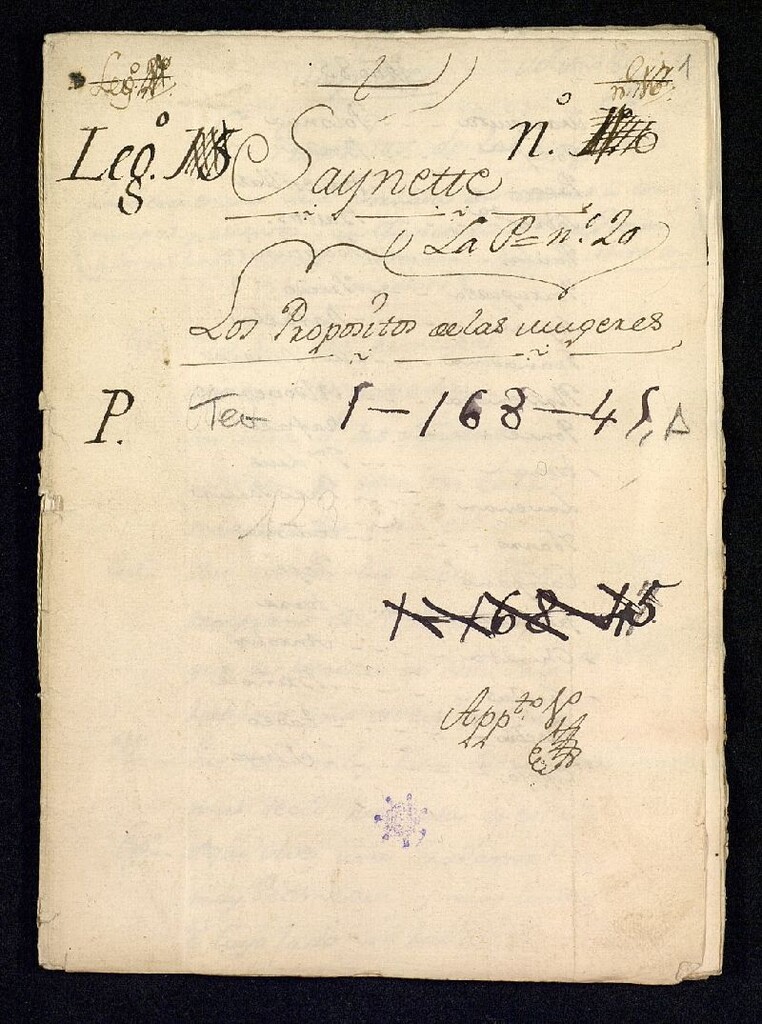 Leg.º
n.º 1
Leg.º 15 Saynette n.º
La P= n.º 20
Los Propositos de las mugeres
P. Tea 1-168-45, A
1-168-45
App.to